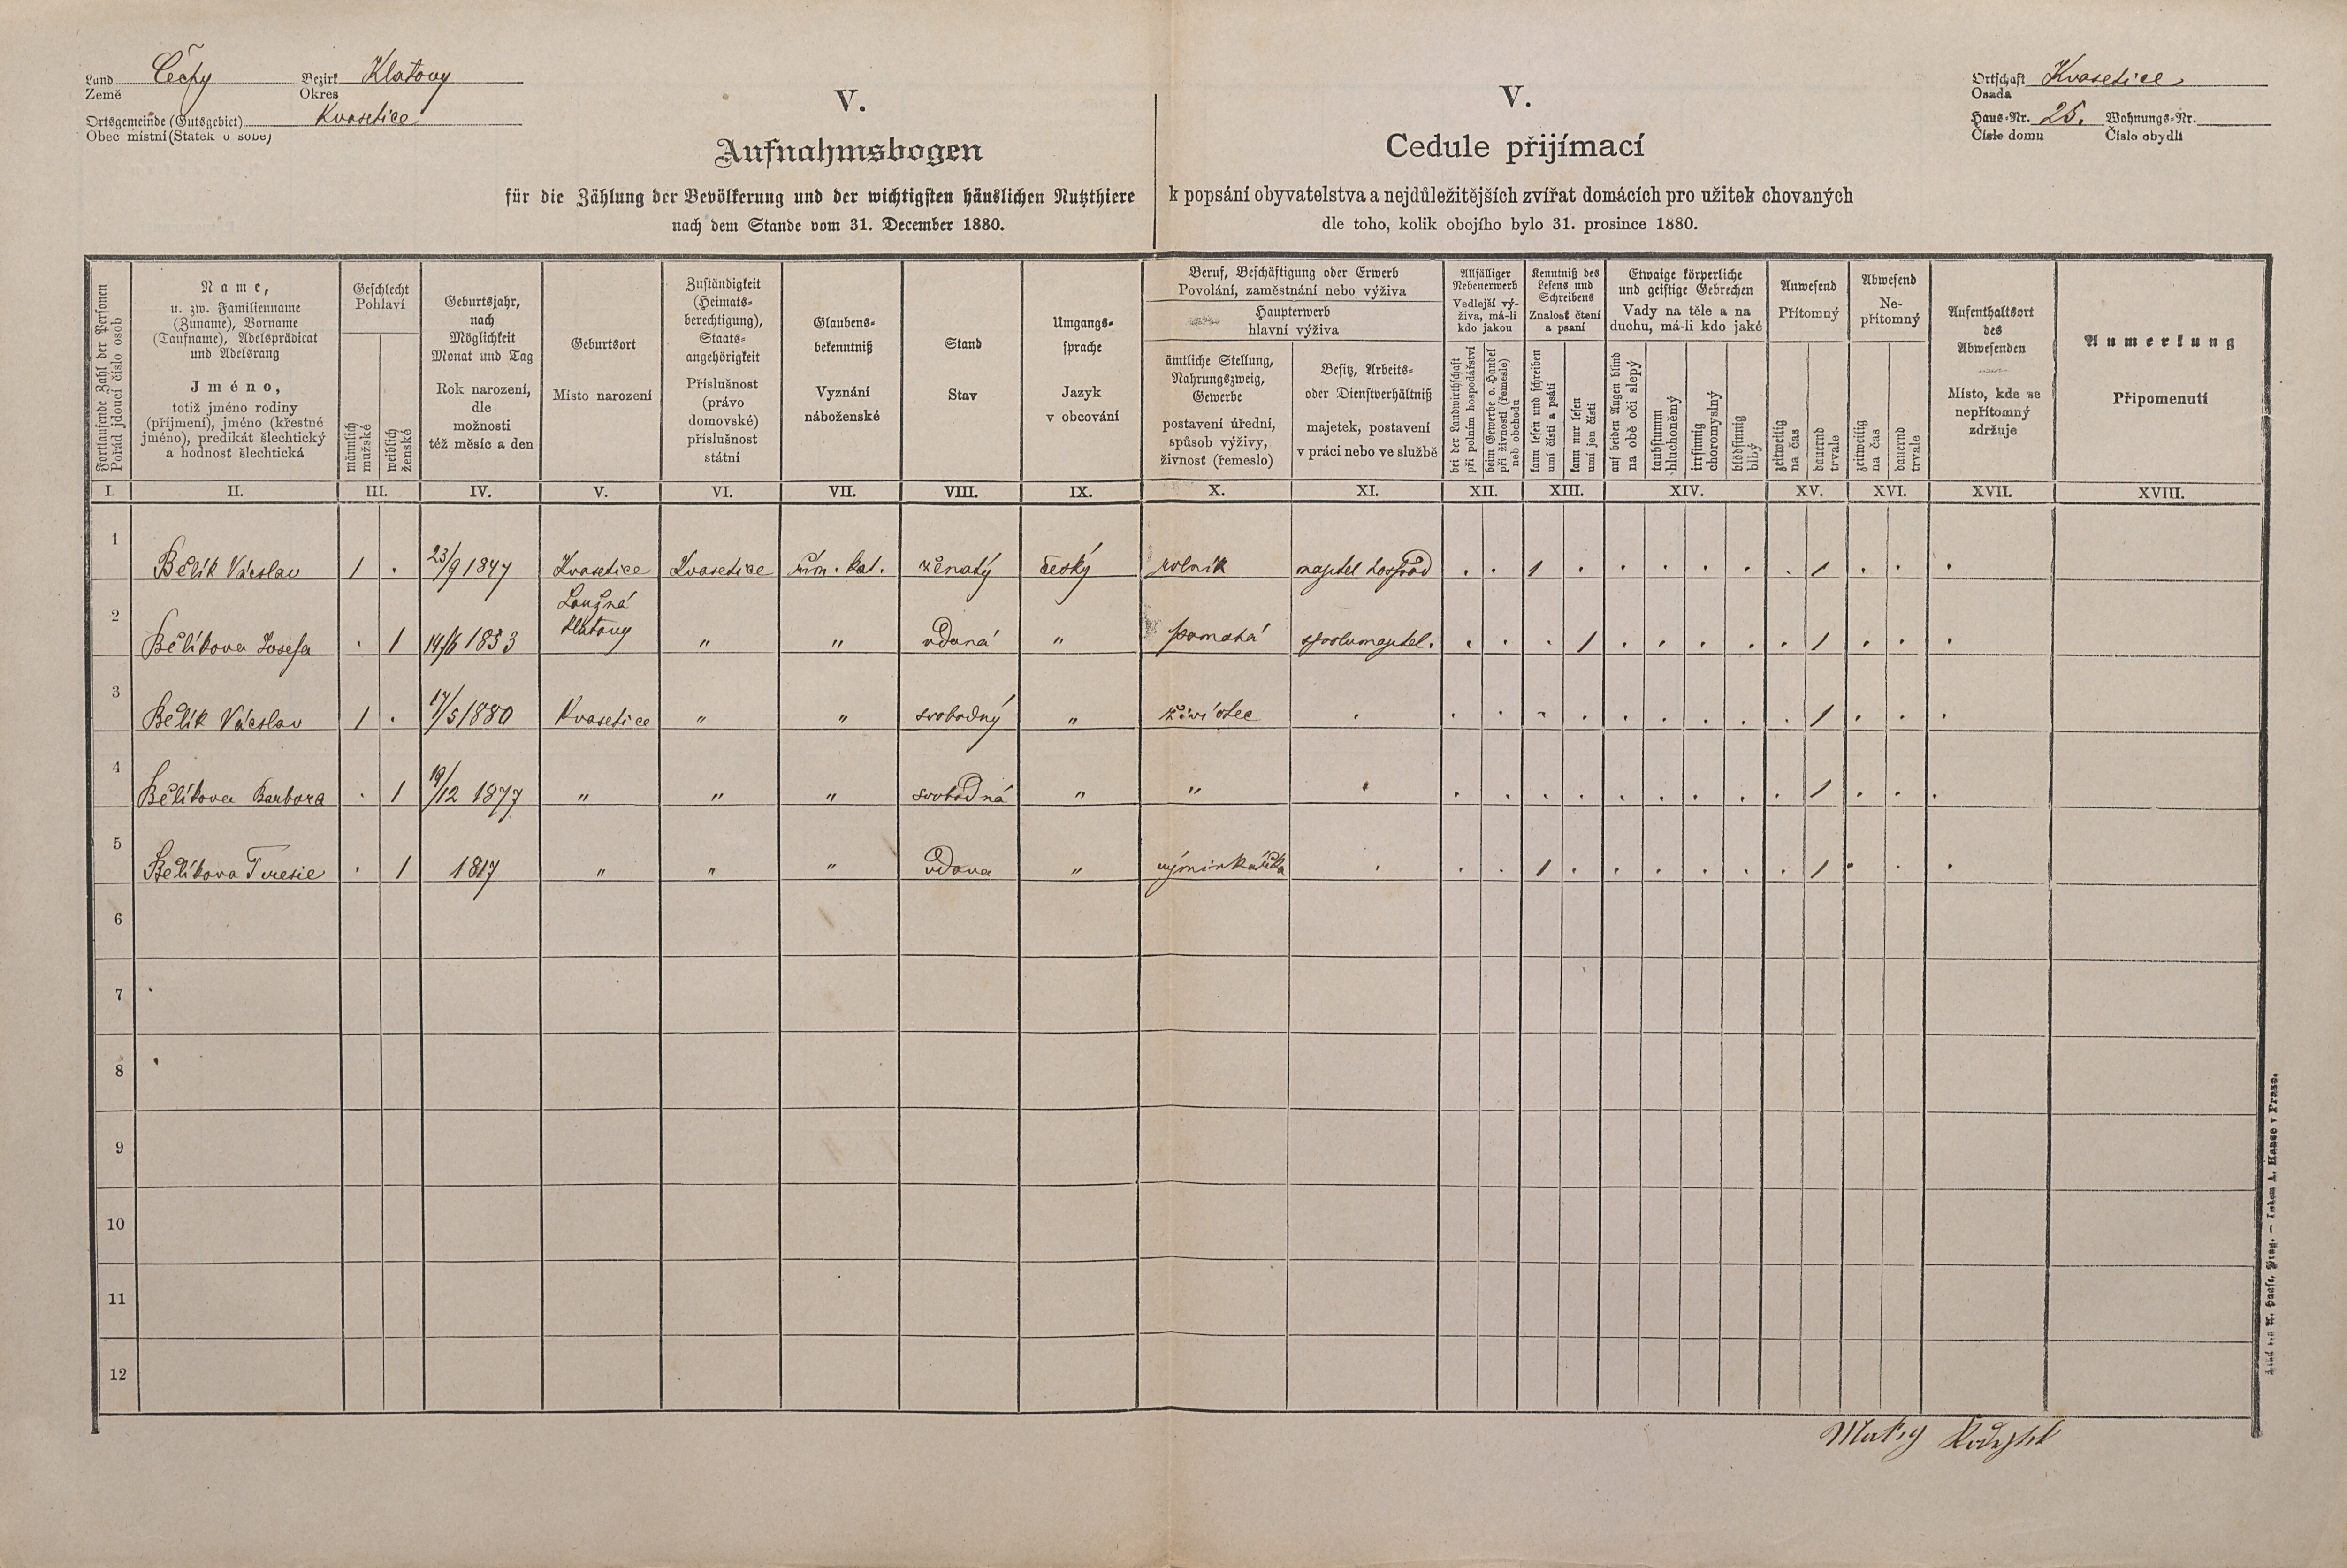 Land Čechy Bezirk Klatovy
Země Okres
Ortsgemeinde (Gutsgebiet) Kvasetice
Obec místní (Statek o sobě)
Ortschaft Kvasetice
Osada
Haus-Nr. 25. Wohnungs-Nr.
Číslo domu Číslo obydlí
V.
Aufnahmsbogen
für die Zählung der Bevölkerung und der wichtigsten häuslichen Nutzthiere
nach dem Stande vom 31. December 1880.
V.
Cedule přijímací
k popsání obyvatelstva a nejdůležitějších zvířat domácích pro užitek chovaných
dle toho, kolik obojího bylo 31. prosince 1880.
Fortlaufende Zahl der Personen
Pořád jdoucí číslo osob
Name,
u. zw. Familienname
(Zuname), Vorname
(Taufname), Adelsprädicat
und Adelsrang
Jméno,
totiž jméno rodiny
(příjmení), jméno (křestné
jméno), predikát šlechtický
a hodnosť šlechtická
Geschlecht
Pohlaví
männlich
mužské
weiblich
ženské
Geburtsjahr,
nach
Möglichkeit
Monat und Tag
Rok narození,
dle
možnosti
též měsíc a den
Geburtsort
Místo narození
Zuständigkeit
(Heimats-
berechtigung),
Staats-
angehörigkeit
Příslušnost
(právo
domovské)
příslušnost
státní
Glaubens-
bekenntniß
Vyznání
náboženské
Stand
Stav
Umgangs-
sprache
Jazyk
v obcování
Beruf, Beschäftigung oder Erwerb
Povolání, zaměstnání nebo výživa
Haupterwerb
hlavní výživa
ämtliche Stellung,
Nahrungszweig,
Gewerbe
postavení úřední,
spůsob výživy,
živnosť (řemeslo)
Besitz, Arbeits-
oder Dienstverhältniß
majetek, postavení
v práci nebo ve službě
Allfälliger
Nebenerwerb
Vedlejší vý-
živa, má-li
kdo jakou
bei der Landwirthschaft
při polním hospodářství
beim Gewerbe o. Handel
při živnosti (řemesle)
neb obchodu
Kenntniß des
Lesens und
Schreibens
Znalosť čtení
a psaní
kann lesen und schreiben
umí čísti a psáti
kann nur lesen
umí jen čísti
Etwaige körperliche
und geistige Gebrechen
Vady na těle a na
duchu, má-li kdo jaké
auf beiden Augen blind
na obě oči slepý
taubstumm
hluchoněmý
irrsinnig
choromyslný
blödsinnig
blbý
Anwesend
Přítomný
zeitweilig
na čas
dauernd
trvale
Abwesend
Ne-
přítomný
zeitweilig
na čas
dauernd
trvale
Aufenthaltsort
des
Abwesenden
Místo, kde se
nepřítomný
zdržuje
Anmerkung
Připomenutí
I. II. III. IV. V. VI. VII. VIII. IX. X. XI. XII. XIII. XIV. XV. XVI. XVII. XVIII.
1 Bělík Václav 1 . 23/9 1847 Kvasetice Kvasetice řím. kat. ženatý český rolník majitel hospod . . 1 . . . . . . 1 . . .
Loužná
2 Bělíkova Josefa . 1 14/6 1853 Klatovy " " vdaná " pomáhá spolumajitel. . . . 1 . . . . . 1 . . .
3 Bělík Václav 1 . 17/5 1880 Kvasetice " " svobodný " živí otec . . . . . . . . . . 1 . . .
4 Bělíkova Barbora . 1 19/12 1877 " " " svobodná " " . . . . . . . . . . 1 . . .
5 Bělíkova Teresie . 1 1817 " " " vdova " výminkářka . . . 1 . . . . . . 1 . . .
6
7
8
9
10
11
12